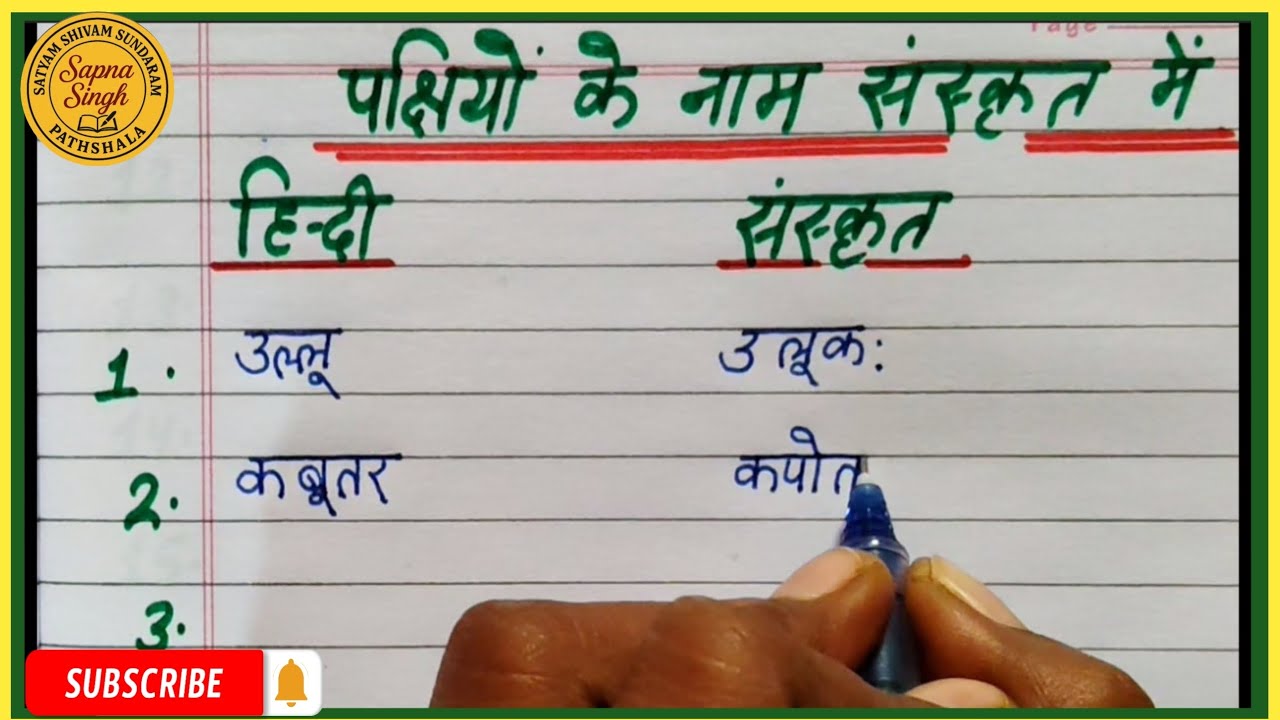 Page
SATYAM SHIVAM SUNDARAM
Sapna
Singh
PATHSHALA
पक्षियों के नाम संस्कृत में
हिन्दी संस्कृत
1. उल्लू उलूक:
2. कबूतर कपोत
3.
SUBSCRIBE